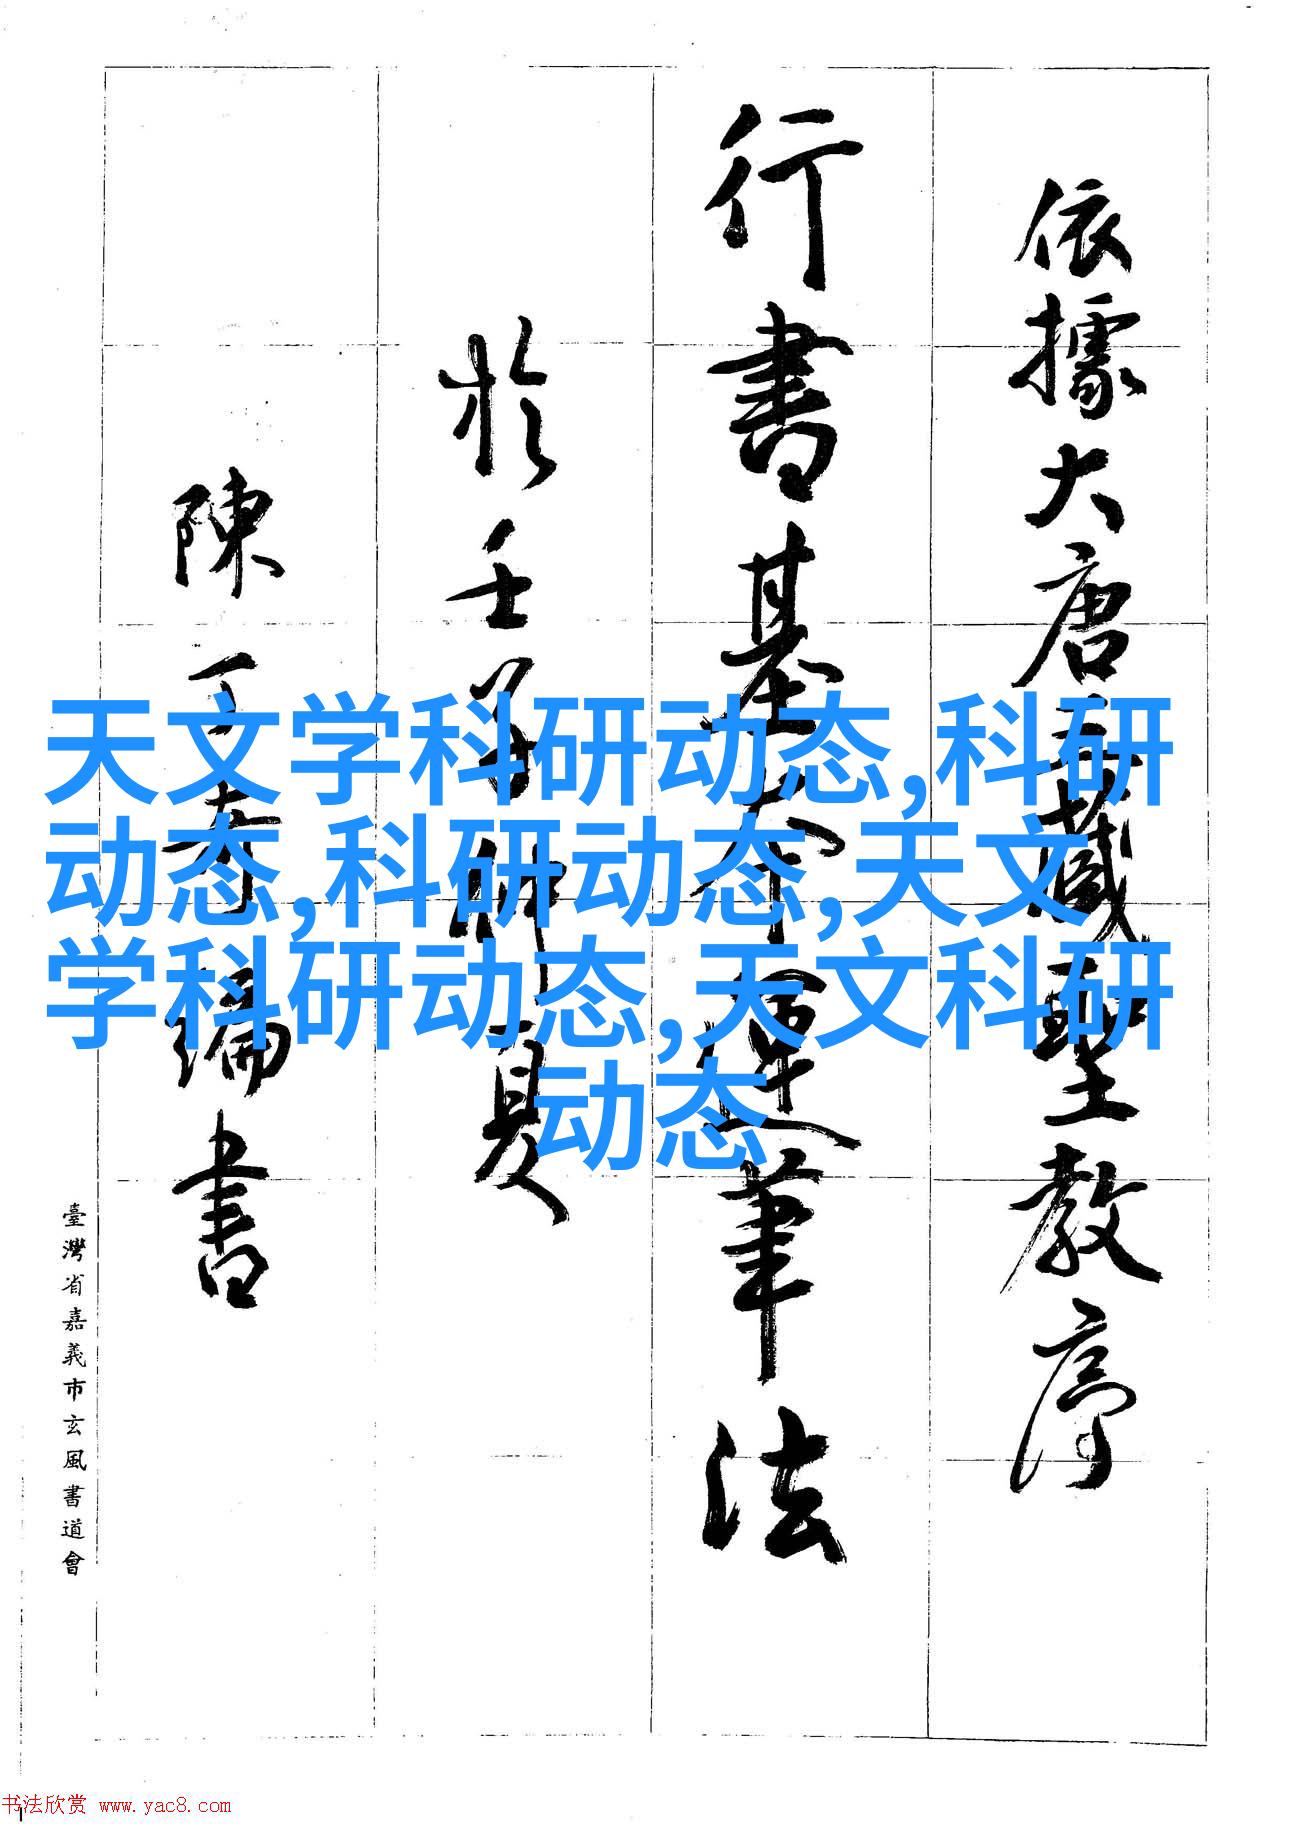 依據大唐三藏聖教序
行書基本運筆法
於壬子仲夏
陳丁奇編書
臺灣省嘉義市玄風書道會
天文学科研动态,科研
动态,科研动态,天文
学科研动态,天文科研
动态
书法欣赏 www.yac8.com